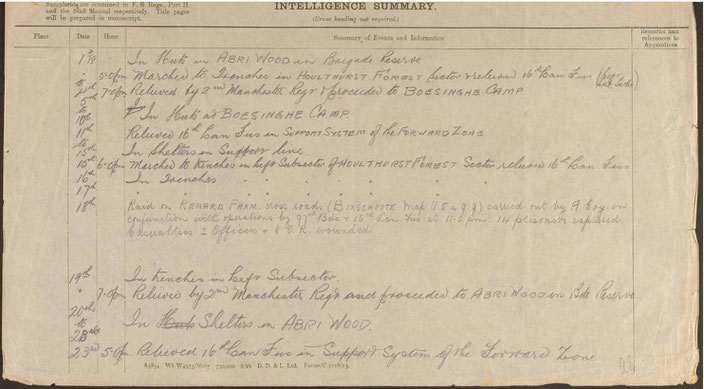 Summaries are contained in F. S. Regs., Part II.
and the Staff Manual respectively. Title pages
will be prepared in manuscript.
INTELLIGENCE SUMMARY.
(Erase heading not required.)
Place Date Hour Summary of Events and Information Remarks and references to Appendices
In Huts in ABRI WOOD in Brigade Reserve
5-0pm Marched to Trenches in HOULTHURST FOREST Sector & relieve 16th Lan Fus
7-0pm Relieved by 2nd Manchester Regt & proceeded to BOESINGHE CAMP
to 10th In Huts at BOESINGHE CAMP.
11th Relieved 16th Lan Fus in SUPPORT SYSTEM of the FORWARD ZONE
to 15th In Shelters in Support line
15th 6-0pm Marched to trenches in Left Subsector of HOULTHURST FOREST Sector relieve 16th Lan Fus
16th In Trenches
17th " " " "
18th Raid on RENARD FARM. cross roads (BIXSCHOOTE Map U 5 a 9.9) carried out by A Coy in
conjunction with operations by 97th Bde & 16th Lan Fus at 11.0 pm. 14 prisoners captured
Casualties 2 Officers & 8 O.R. wounded
19th In trenches in Left Subsector.
" 7-0pm Relieved by 2nd Manchester Regt and proceeded to ABRI WOOD in Bde Reserve
20th to In Huts Shelters in ABRI WOOD.
23rd 5-0pm Relieved 16th Lan Fus in Support System of the Forward Zone
D. D. & L. Ltd.